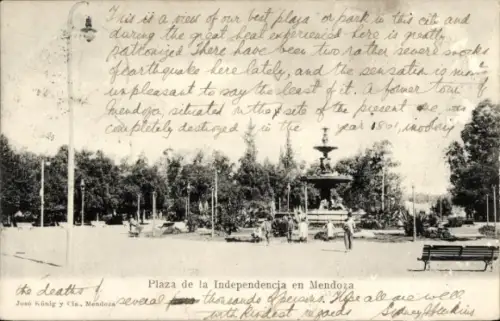 This is a view of our best plaza or park in this city and
during the great heat experienced here is greatly
patronized There have been two rather severe shocks
of earthquake here lately, and the sensation is
unpleasant to say the least of it. A former town of
Mendoza, situated in the site of the present one, was
completely destroyed in the year 1861, involving
Plaza de la Independencia en Mendoza
José König y Cia, Mendoza
the deaths of
several thousands of persons. Hope all are well
with kindest regards